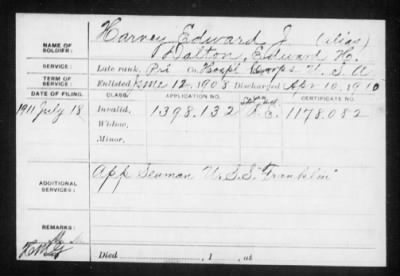 Harvey Edward J. (alias)
NAME OF SOLDIER: Dalton, Edward H.
SERVICE: Late rank, Pvt Hospl Corps U.S.A
TERM OF SERVICE: Enlisted 12, 1908 Discharged Apr 10, 1910
DATE OF FILING. CLASS. APPLICATION NO. CERTIFICATE NO.
1911 July 18 Invalid, 1398.132 1178.082
Widow,
Minor,
ADDITIONAL SERVICES: App Seaman U.S.S. "Franklin"
REMARKS:
Died , 1 , at